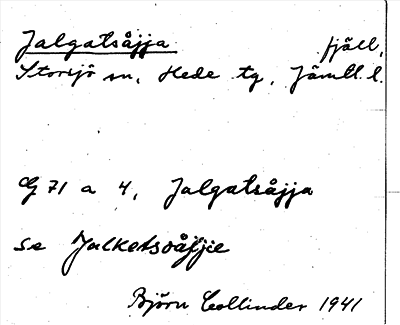 Jalgatsåjja fjäll,
Storsjö sn, Hede tg, Jämtl. l.
G 71 a 4, Jalgatsåjja
se Jalketsoåjjie
Björn Collinder 1941